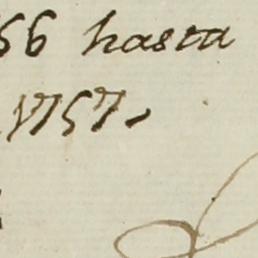 56 hasta
1757.